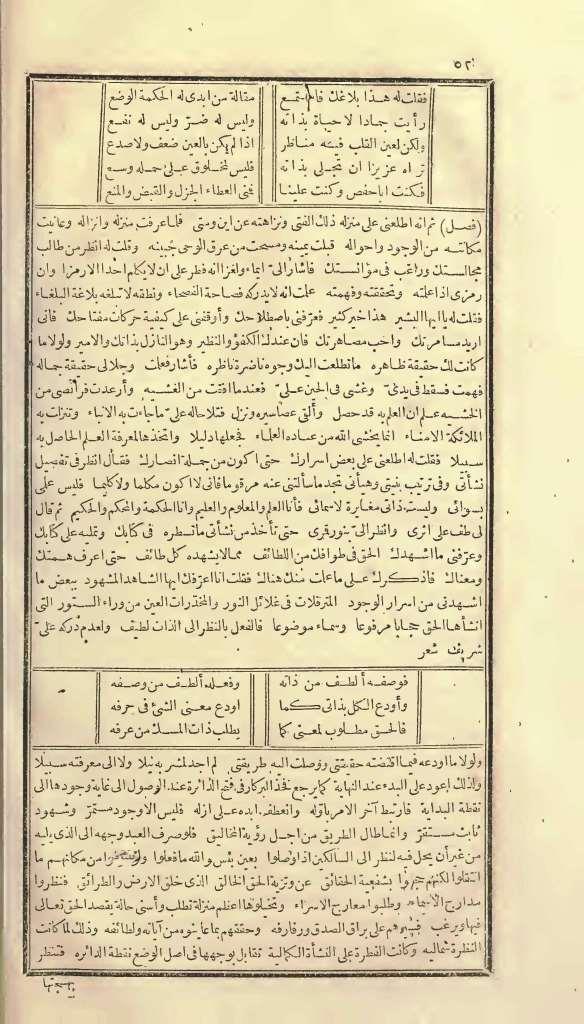 ٥٢
فقلت له هذا بلاغك فاستمع مقالة من ابدى له الحكمة الوضع
رأيت جمادا لاحياة بذاته وليس له ضرّ وليس له نفع
ولكن لعين القلب فيه مناظر اذا لم يكن بالعين ضعف ولا صدع
تراه عزيزا ان تجلى بذاته فليس لمخلوق على حمله وسع
فكنت اباحفص وكنت علينا فمنى العطاء الجزل والقبض والمنع
(فصل) ثم انه اطلعنى على منزلة ذلك الفتى ونزاهته عن اين ومتى فلما عرفت منزله وانزاله وعاينت
مكانته من الوجود واحواله قبلت يمينه ومسحت من عرق الوحى جبينه وقلت له انظر من طالب
مجالستك وراغب فى مؤانستك فأشار الىّ ايماء ولغزا انه فطر على ان لا يكلم احدا الا رمزا وان
رمزى اذا علمته وتحققته وفهمته علمت انه لا يدركه فصاحة الفصحاء ونطقه لا تبلغه بلاغة البلغاء
فقلت له يا ايها البشير هذا خير كثير فعرّفنى باصطلاحك وأوقفنى على كيفية حركات مفتاحك فانى
اريد مسامرتك واحب مصاهرتك فان عندك الكفؤ والنظير وهو النازل بذاتك والامير ولولا ما
كانت لك حقيقة ظاهره ما تطلعت اليك وجوه ناضرة ناظره فأشار فعلمت وجلالى حقيقة جماله
فهمت فسقط فى يدىّ وغشى فى الحين علىّ فعندما افقت من الغشيه وأرعدت فرائصى من
الخشيه علم ان العلم به قد حصل وألقى عصا سيره ونزل فتلا حاله علىّ ما جاءت به الانباء وتنزلت به
الملائكة الامناء انما يخشى الله من عباده العلماء فجعلها دليلا واتخذها لمعرفة العلم الحاصل به
سبيلا فقلت له اطلعنى على بعض اسرارك حتى اكون من جملة انصارك فقال انظر فى تفصيل
نشأتى وفى ترتيب بنيتى وهيأتى تجد ما سألتنى عنه مرقوما فانى لا اكون مكلما ولا كليما فليس على
بسوائى وليست ذاتى مغايرة لاسمائى فأنا العلم والمعلوم والعليم وانا الحكمة والمحكم والحكيم ثم قال
لى طف على اثرى وانظر الىّ بنور قمرى حتى تأخذ من نشأتى ما تسطره فى كتابك وتمليه على كتابك
وعرّفنى ما اشهدك الحق فى طوافك من اللطائف مما لا يشهده كل طائف حتى اعرف همتك
ومعناك فأذكرك على ما علمت منك هناك فقلت انا اعرّفك ايها الشاهد المشهود ببعض ما
اشهدنى من اسرار الوجود المترفلات فى غلائل النور والمخدّرات العين من وراء الستور التى
انشأها الحق حجابا مرفوعا وسماء موضوعا فالفعل بالنظر الى الذات لطيف ولعدم دركه علىّ
شريف شعر
فوصفه ألطف من ذاته وفعله ألطف من وصفه
وأودع الكل بذاتى كما اودع معنى الشئ فى حرفه
فالحق مطلوب لمعنى كما يطلب ذات المسك من عرفه
ولولا ما اودعه فىّ ما اقتضته حقيقتى ووصلت اليه طريقتى لم اجد لمشربه نيلا ولا الى معرفته سبيلا
ولذلك اعود على البدء عند النهاية كما يرجع فخذ البركار فى فتح الدائرة عند الوصول الى غاية وجودها الى
نقطة البداية فارتبط آخر الامر بأوله وانعطف ابده على ازله فليس الا وجود مستمرّ وشهود
ثابت مستقرّ وانما طال الطريق من اجل رؤية المخاليق فلو صرف العبد وجهه الى الذى يليه
من غير أن يحل فيه لنظر الى السالكين اذا وصلوا بعين بئس والله ما فعلوا من مكانهم ما
انتقلوا لكنهم حجبوا بشفعية الحقائق عن وترية الحق الخالق الذى خلق الارض والطرائق فنظروا
مدارج الاسماء وطلبوا معارج الاسراء وتخيلوها اعظم منزلة تطلب وأسنى حالة يقصد الحق تعالى
فيها ويرغب على براق الصدق ورفارفه وحققهم بما عاينوه من آياته ولطائفه وذلك لما كانت
النظرة شماليه وكانت الفطرة على النشأة الكماليه تقابل بوجهها فى اصل الوضع نقطة الدائره فتنظر